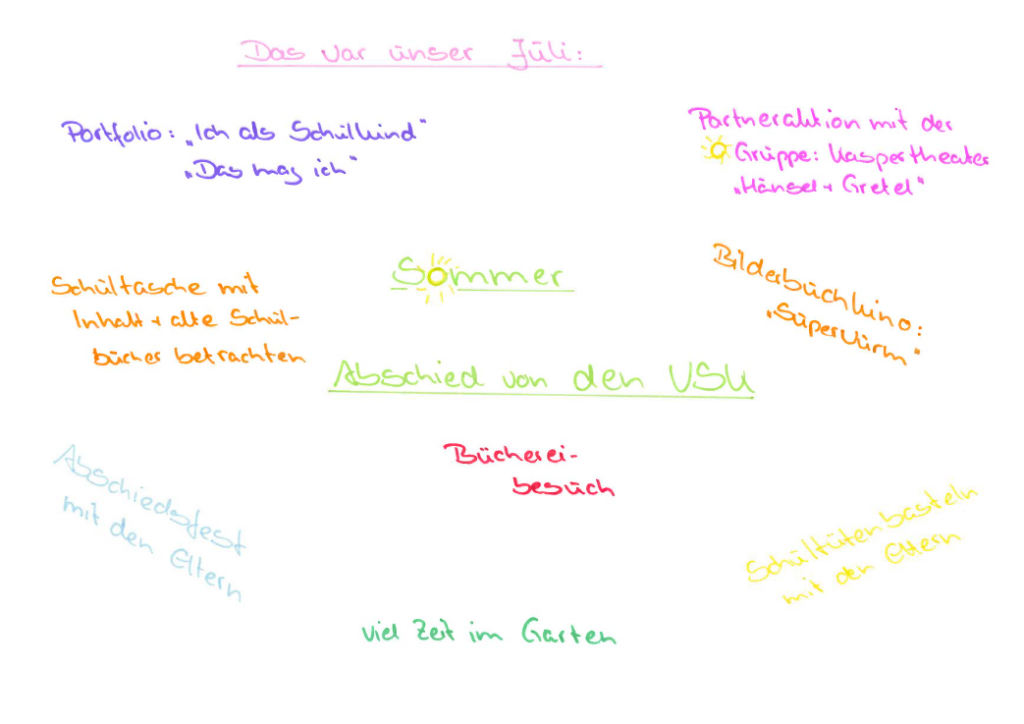 Das war unser Juli:
Portfolio: „Ich als Schulkind“
„Das mag ich“
Partneraktion mit der
Gruppe: Kaspertheater
„Hänsel + Gretel“
Sommer
Schultasche mit
Inhalt + alte Schul-
bücher betrachten
Bilderbuchkino:
„Superwurm“
Abschied von den VSK
Bücherei-
besuch
Abschiedsfest
mit den Eltern
Schultütenbasteln
mit den Eltern
viel Zeit im Garten